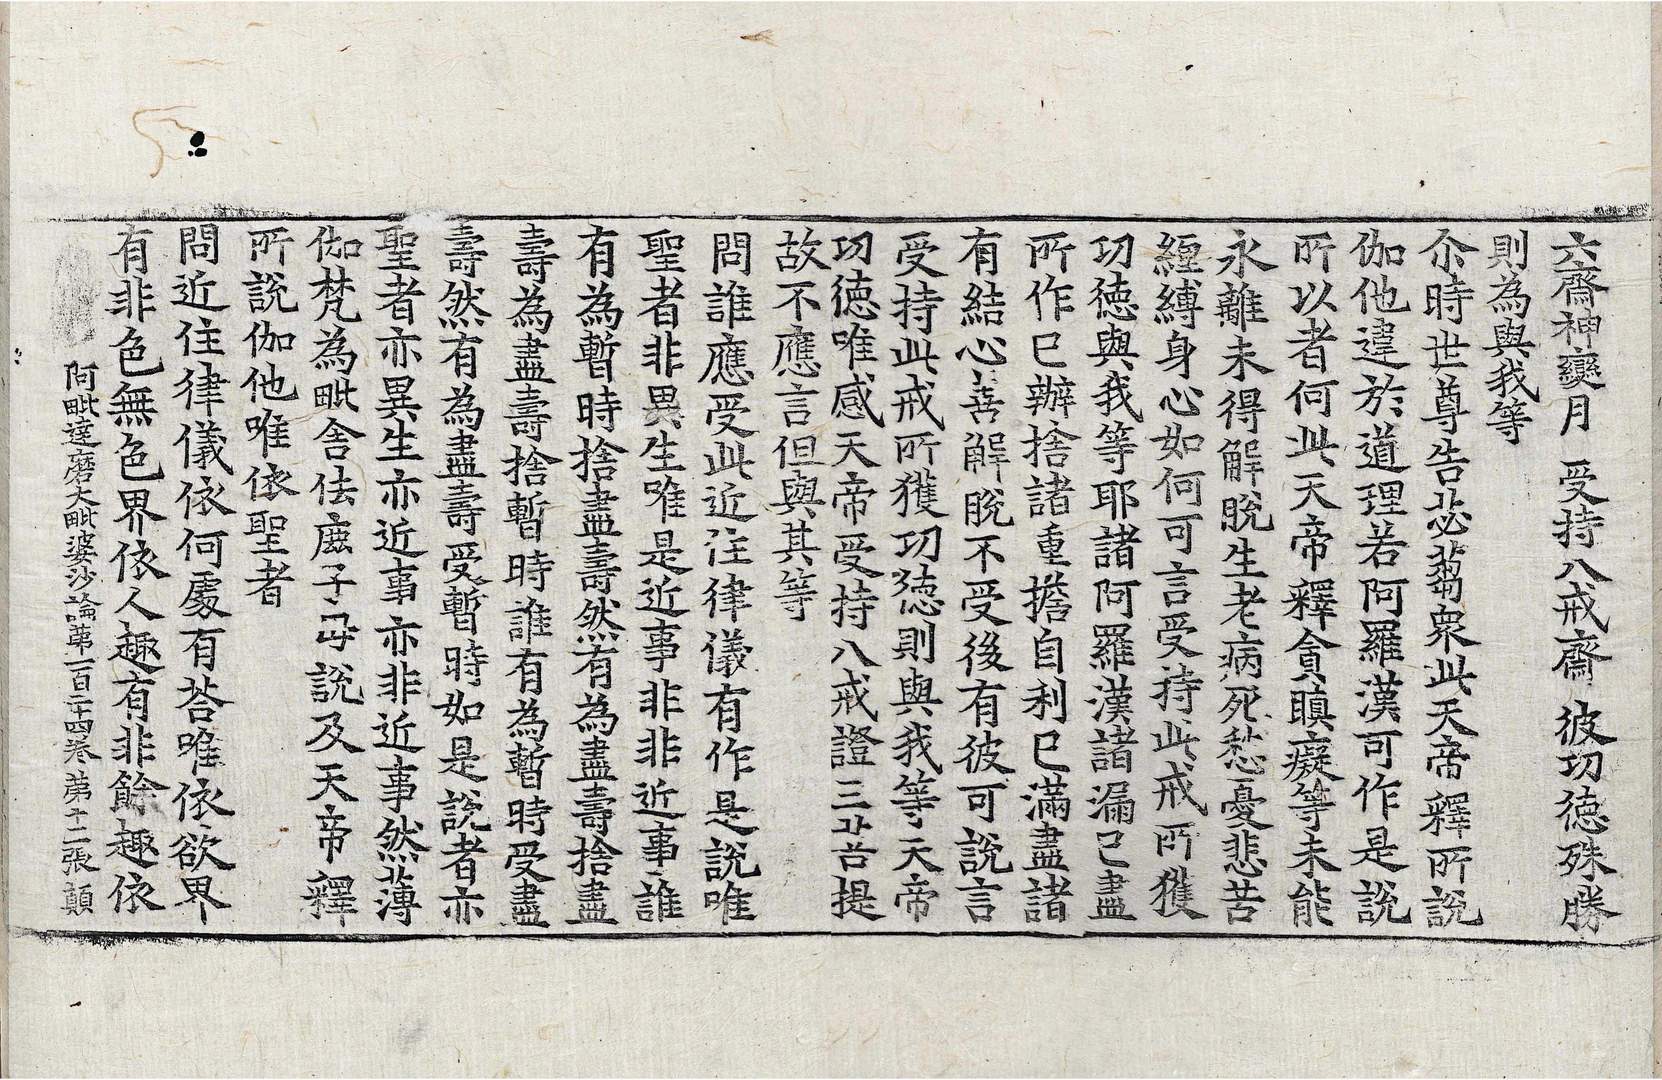 六齋神變月　受持八戒齋　彼功德殊勝
則為與我等
尒時世尊告苾芻衆此天帝釋所說
伽他違於道理若阿羅漢可作是說
所以者何此天帝釋貪瞋癡等未能
永離未得解脫生老病死愁憂悲苦
纏縛身心如何可言受持此戒所獲
功德與我等耶諸阿羅漢諸漏已盡
所作已辦捨諸重擔自利已滿盡諸
有結心善解脫不受後有彼可說言
受持此戒所獲功德則與我等天帝
功德唯感天帝受持八戒證三菩提
故不應言但與其等
問誰應受此近住律儀有作是說唯
聖者非異生唯是近事非非近事誰
有為暫時捨盡壽然有為盡壽捨盡
壽為盡壽捨暫時誰有為暫時受盡
壽然有為盡壽受暫時如是說者亦
聖者亦異生亦近事亦非近事然薄
伽梵為毗舍佉鹿子母說及天帝釋
所說伽他唯依聖者
問近住律儀依何處有荅唯依欲界
有非色無色界依人趣有非餘趣依
阿毗達磨大毗婆沙論苐一百二十四卷　苐十二張　顛